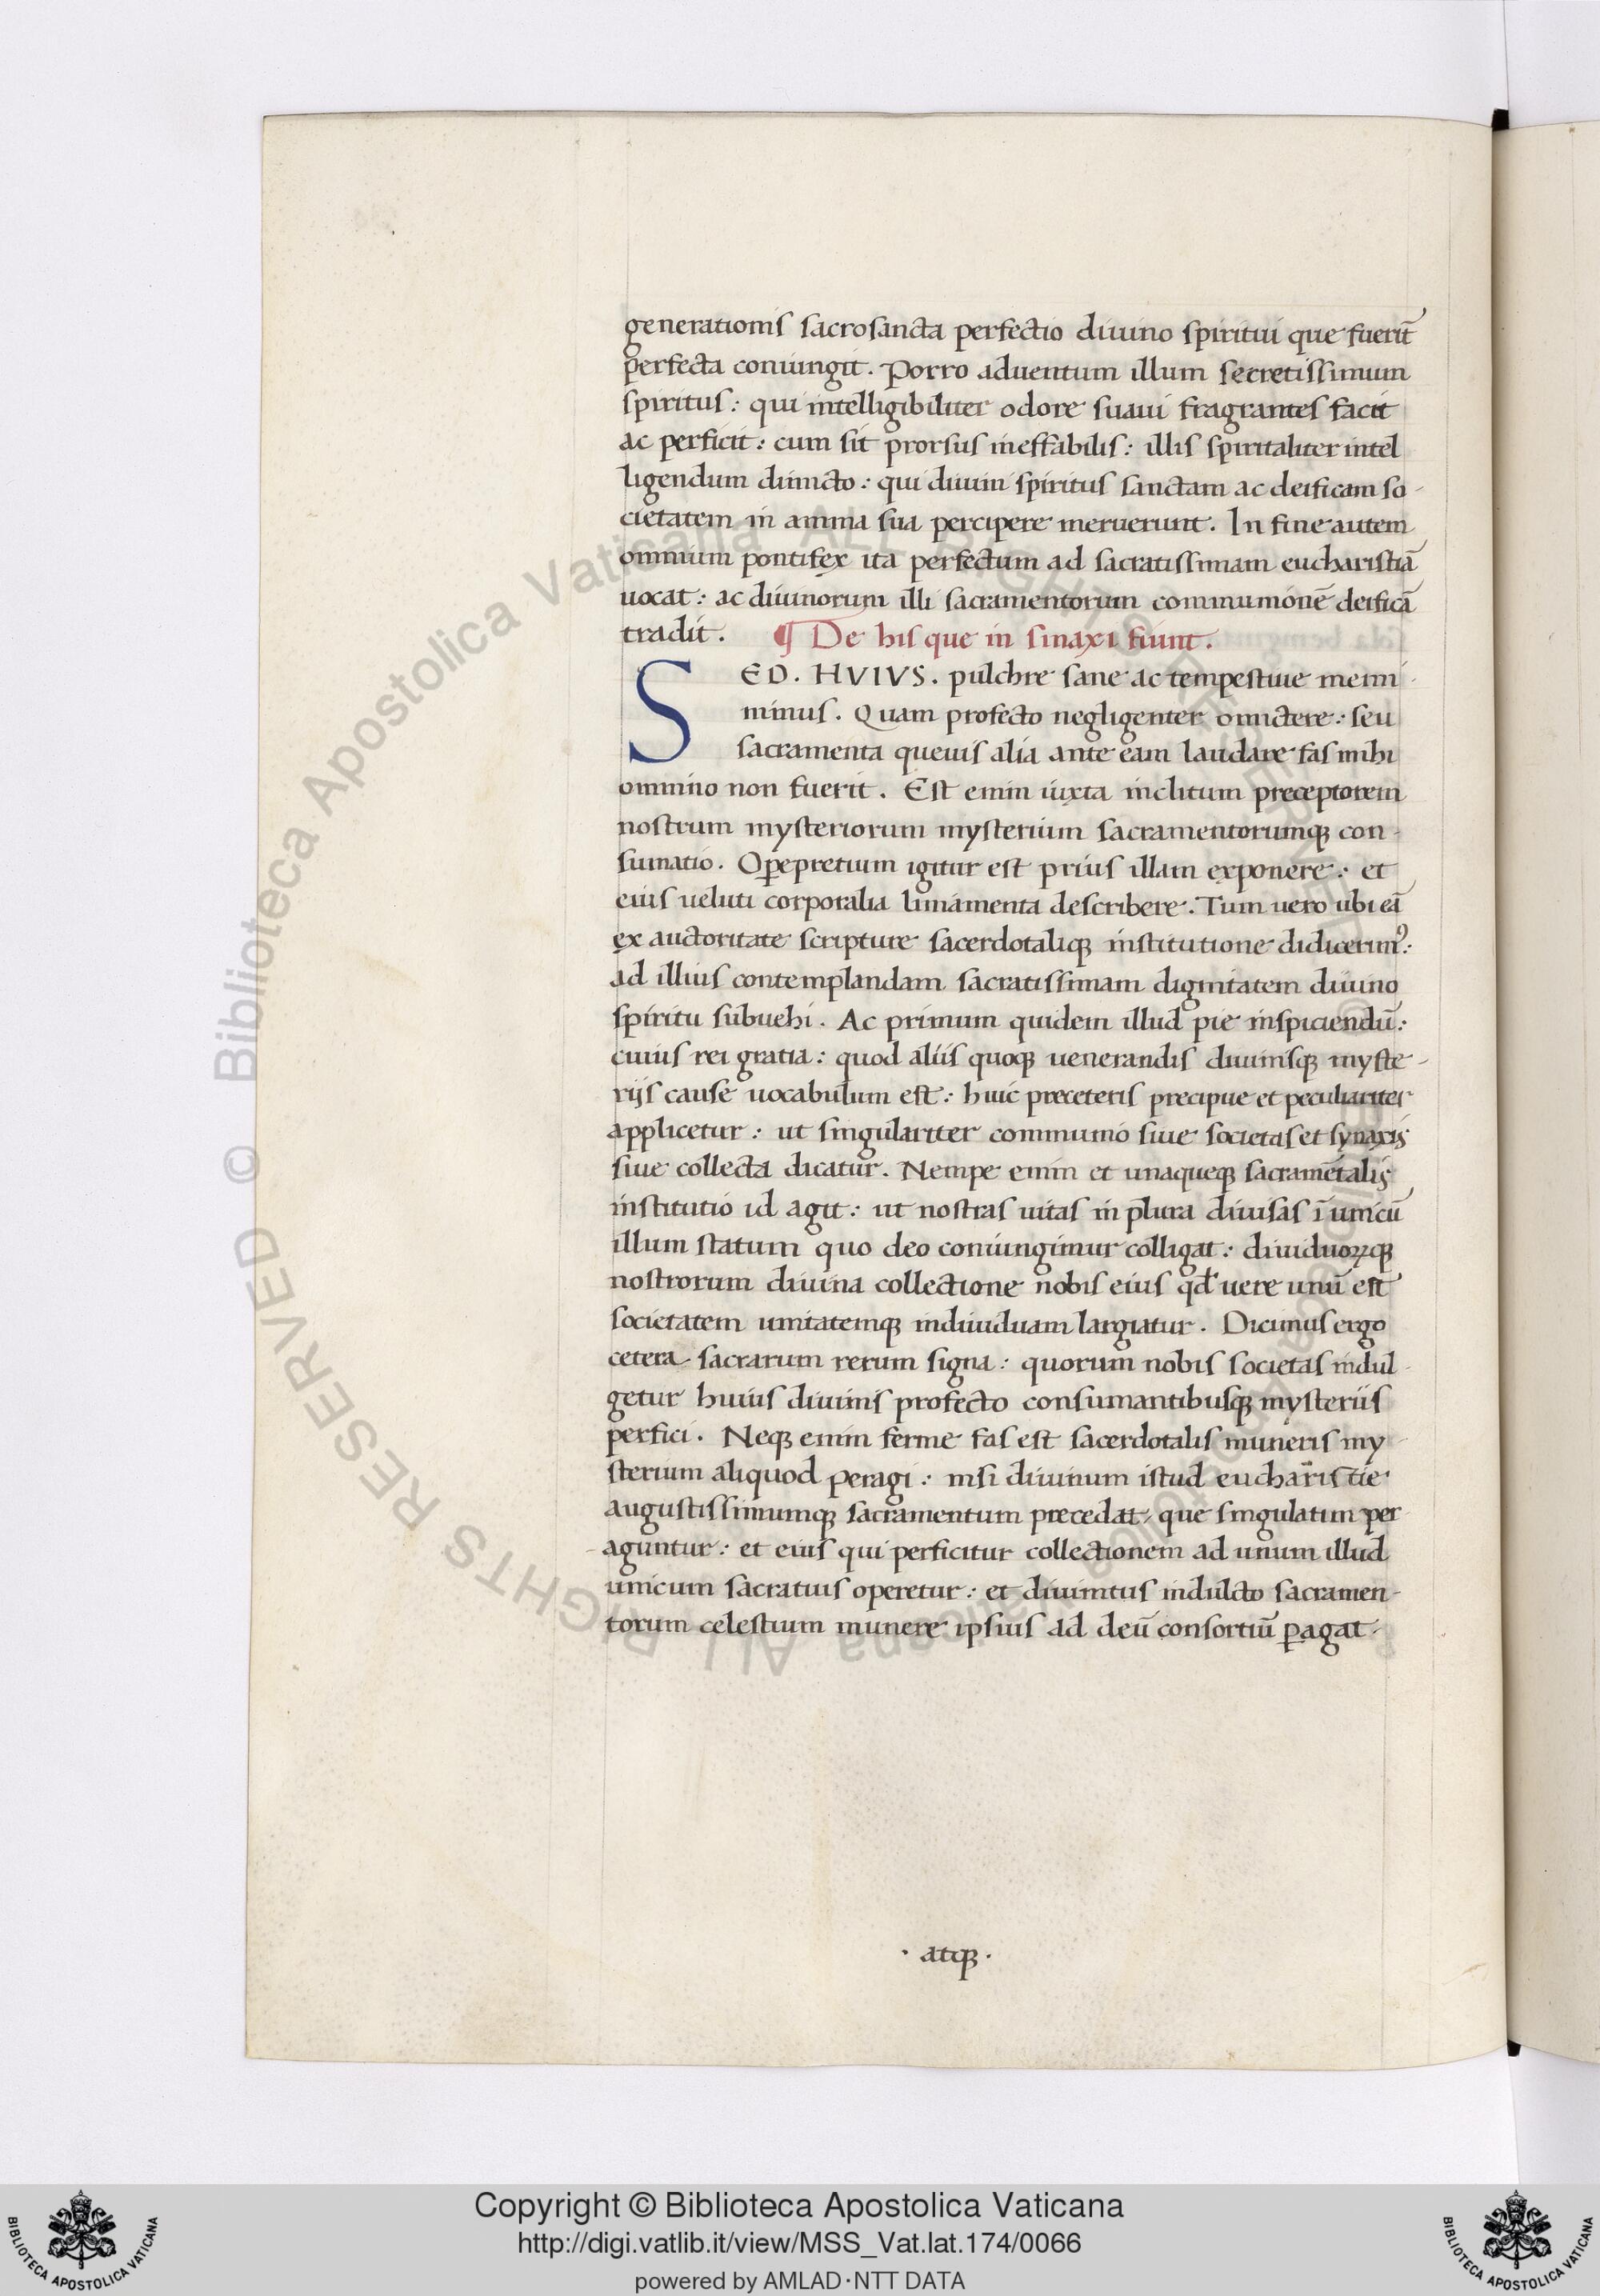 generationis sacrosancta perfectio diuino spiritui que fuerit̄
perfecta coniungit. Porro aduentum illum secretissimum
spiritus: qui intelligibiliter odore suaui fragrantes facit
ac perficit: cum sit prorsus ineffabilis: illis spiritaliter intel
ligendum dimicto: qui diuini spiritus sanctam ac deificam so-
cietatem in anima sua percipere meruerunt. In fine autem
omnium pontifex ita perfectum ad sacratissimam eucharistiā
uocat: ac diuinorum illi sacramentorum communionē deificā
tradit. ¶ De his que in sinaxi fiunt.
SED. HVIVS. pulchre sane ac tempestiue memi-
minus. Quam profecto negligenter omictere: seu
sacramenta queuis alia ante eam laudare fas mihi
omnino non fuerit. Est enim iuxta inclitum preceptorem
nostrum mysteriorum mysterium sacramentorumqꝫ con-
sumatio. Operepretium igitur est prius illam exponere: et
eius ueluti corporalia liniamenta describere. Tum uero ubi eā
ex auctoritate scripture sacerdotaliqꝫ institutione didicerimꝰ:
ad illius contemplandam sacratissimam dignitatem diuino
spiritu subuehi. Ac primum quidem illud pie inspiciendū:
cuius rei gratia: quod aliis quoqꝫ uenerandis diuinisqꝫ myste-
rijs cause uocabulum est: huic preceteris precipue et peculiariter
applicetur: ut singulariter communio siue societas et synaxis
siue collecta dicatur. Nempe enim et unaqueqꝫ sacramētalis
institutio id agit: ut nostras uitas in plura diuisas ī unicū
illum statum quo deo coniungimur colligat: diuiduoꝝqꝫ
nostrorum diuina collectione nobis eius qđ uere unū est
societatem unitatemqꝫ indiuiduam largiatur. Dicimus ergo
cetera sacrarum rerum signa: quorum nobis societas indul-
getur huius diuinis profecto consumantibusqꝫ mysteriis
perfici. Neqꝫ enim ferme fas est sacerdotalis muneris my-
sterium aliquod peragi: nisi diuinum istud eucharistie
augustissimumqꝫ sacramentum precedat, que singulatim per
aguntur: et eius qui perficitur collectionem ad unum illud
unicum sacratius operetur: et diuinitus indulcto sacramen-
torum celestium munere ipsius ad deū consortiū ꝑagat.
· atqꝫ ·
© Biblioteca Apostolica Vaticana ALL RIGHTS RESERVED © Biblioteca Apostolica Vaticana ALL RIGHTS RESERVED
Copyright © Biblioteca Apostolica Vaticana
http://digi.vatlib.it/view/MSS_Vat.lat.174/0066
powered by AMLAD·NTT DATA
BIBLIOTECA APOSTOLICA VATICANA
BIBLIOTECA APOSTOLICA VATICANA